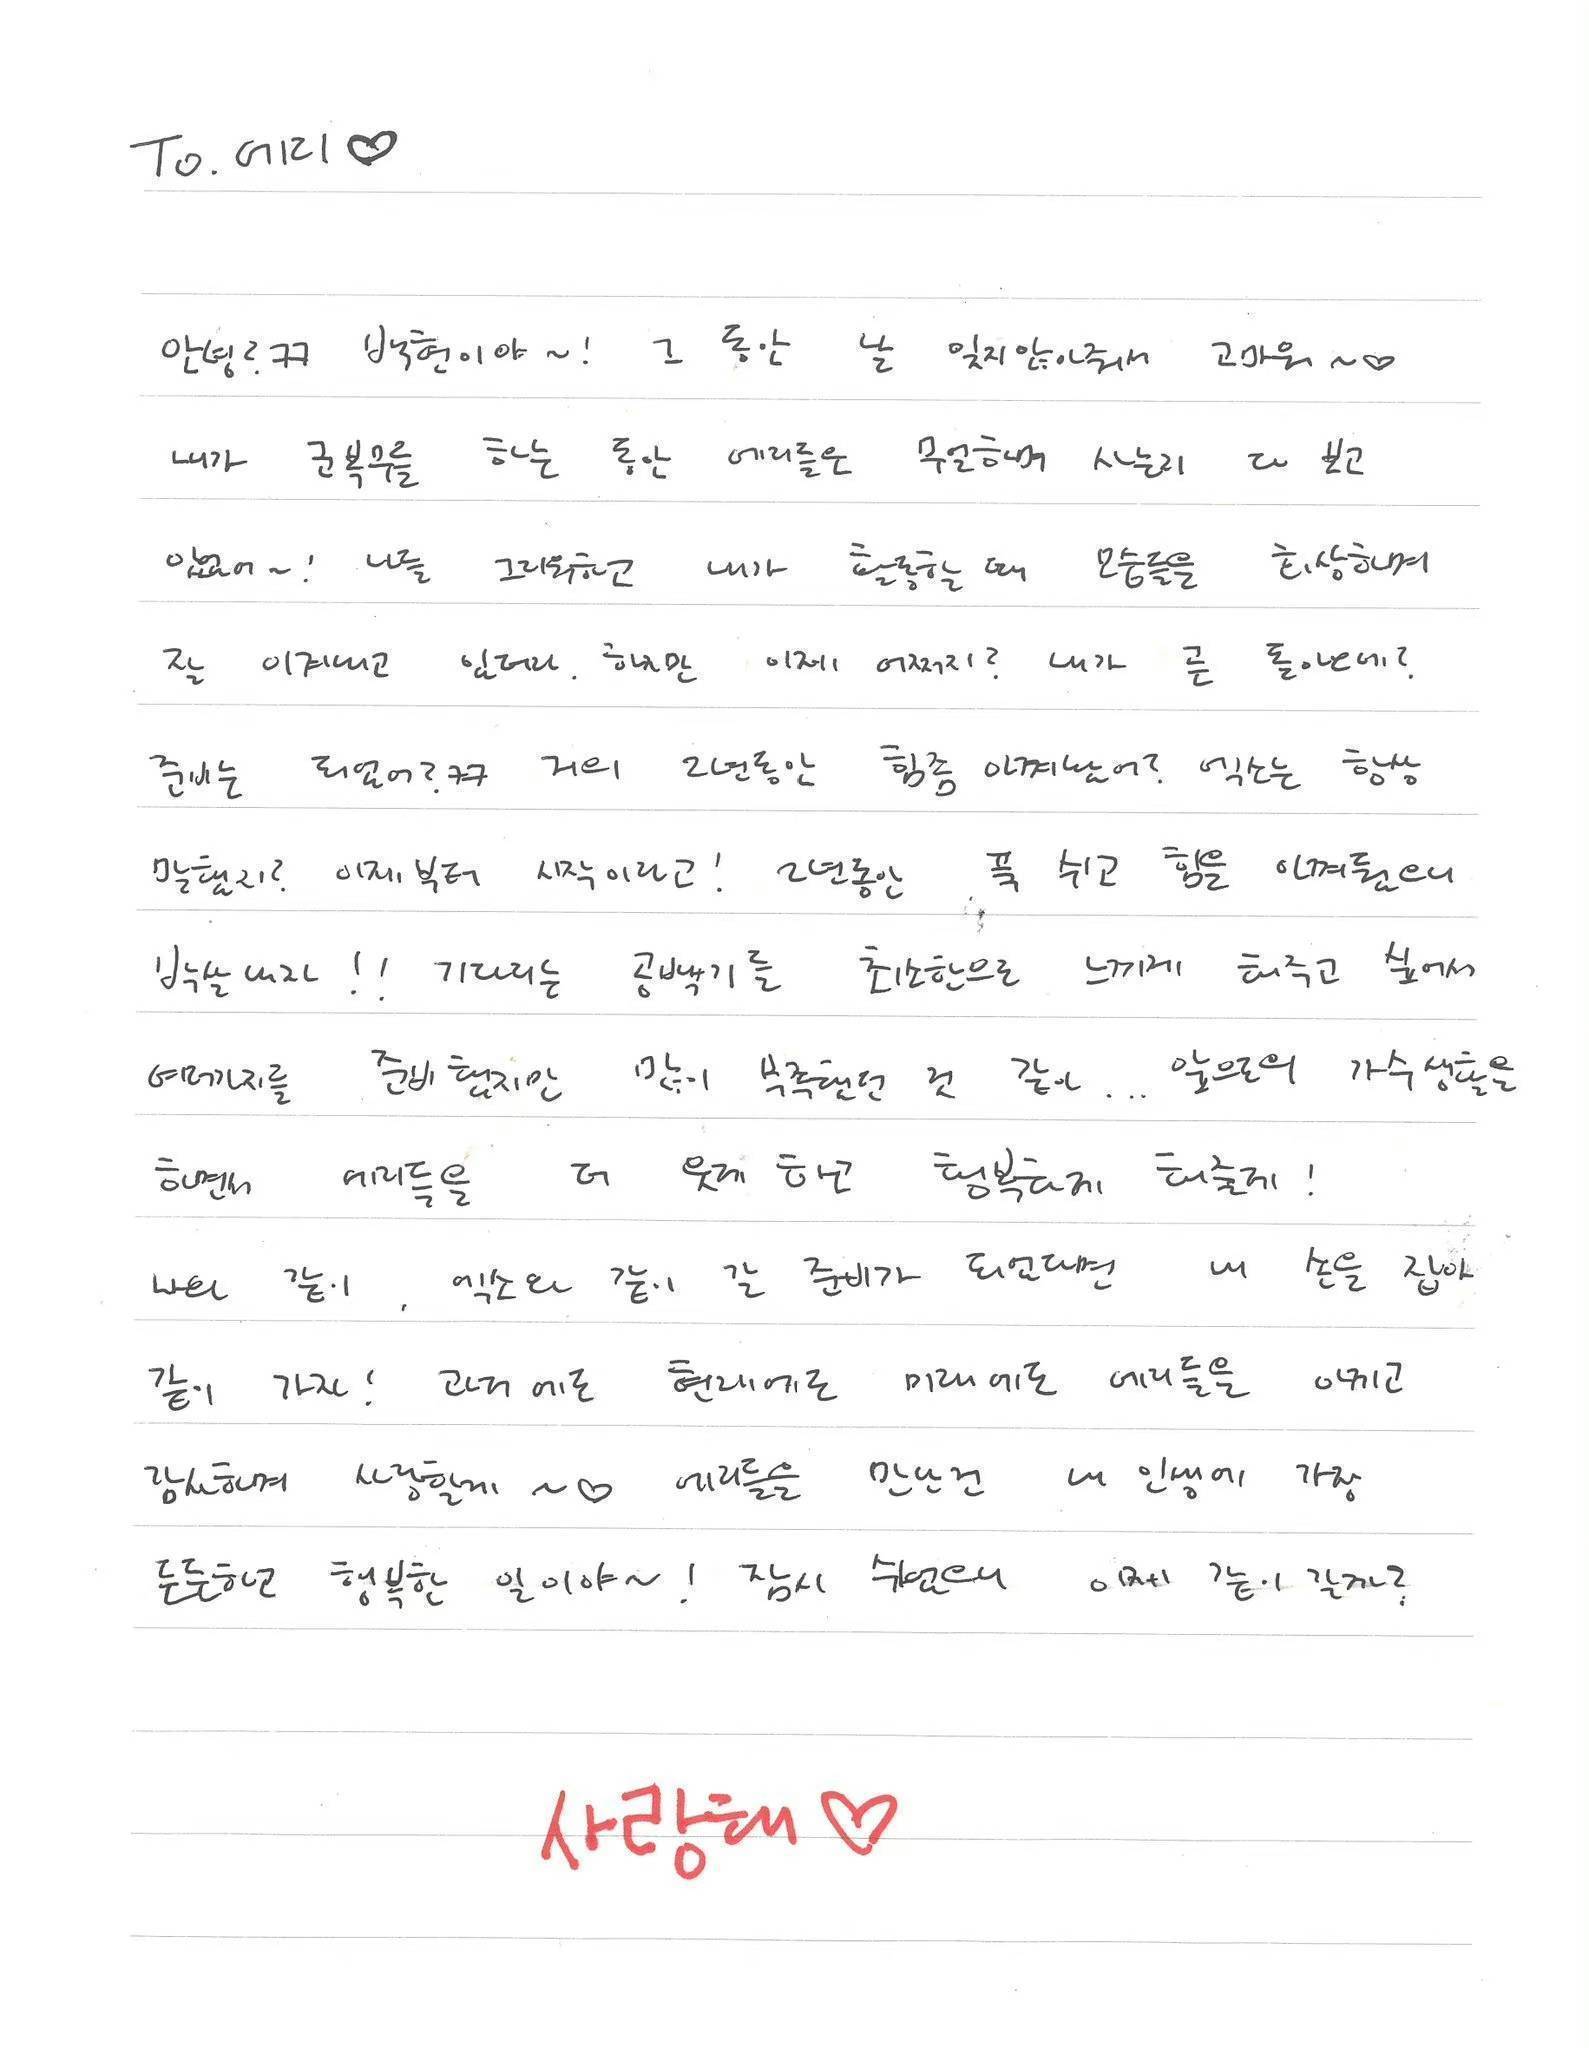 To. 에리♡
안녕?ㅋㅋ 백현이야~! 그 동안 날 잊지않아줘서 고마워~♡
내가 군복무를 하는 동안 에리들은 무얼하며 사는지 다 보고
있었어~! 나를 그리워하고 내가 활동할 때 모습들을 회상하며
잘 이겨내고 있더라. 하지만 이제 어쩌지? 내가 곧 돌아온데?
준비는 되었어?ㅋㅋ 거의 2년동안 힘좀 아껴놨어? 엑소는 항상
말했지? 이제부터 시작이라고! 2년동안 푹 쉬고 힘을 아껴뒀으니
박살내자!! 기다리는 공백기를 최소한으로 느끼게 해주고 싶어서
여러가지를 준비했지만 많이 부족했던 것 같아... 앞으로의 가수생활을
하면서 에리들을 더 웃게 하고 행복하게 해줄게!
나와 같이, 엑소와 같이 갈 준비가 되었다면 내 손을 잡아
같이 가자! 과거에도 현재에도 미래에도 에리들을 아끼고
감사하며 사랑할게~♡ 에리들을 만난건 내 인생에 가장
든든하고 행복한 일이야~! 잠시 쉬었으니 이제 같이 갈까?
사랑해♡